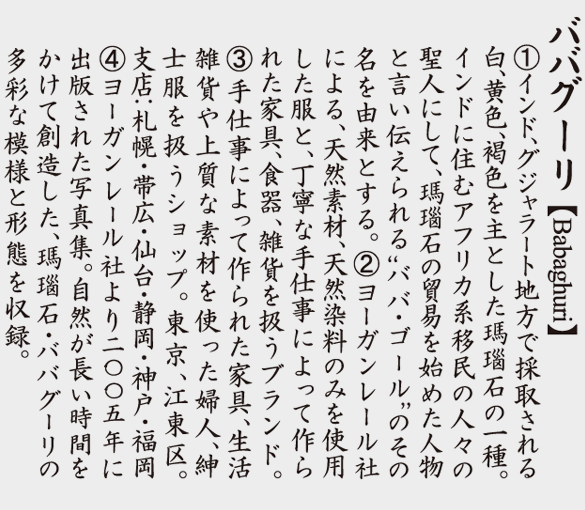 ババグーリ【Babaghuri】
①インド、グジャラート地方で採取される
白、黄色、褐色を主とした瑪瑙石の一種。
インドに住むアフリカ系移民の人々の
聖人にして、瑪瑙石の貿易を始めた人物
と言い伝えられる“ババ・ゴール”のその
名を由来とする。②ヨーガンレール社
による、天然素材、天然染料のみを使用
した服と、丁寧な手仕事によって作ら
れた家具、食器、雑貨を扱うブランド。
③手仕事によって作られた家具、生活
雑貨や上質な素材を使った婦人、紳
士服を扱うショップ。東京、江東区。
支店：札幌・帯広・仙台・静岡・神戸・福岡
④ヨーガンレール社より二〇〇五年に
出版された写真集。自然が長い時間を
かけて創造した、瑪瑙石・ババグーリの
多彩な模様と形態を収録。